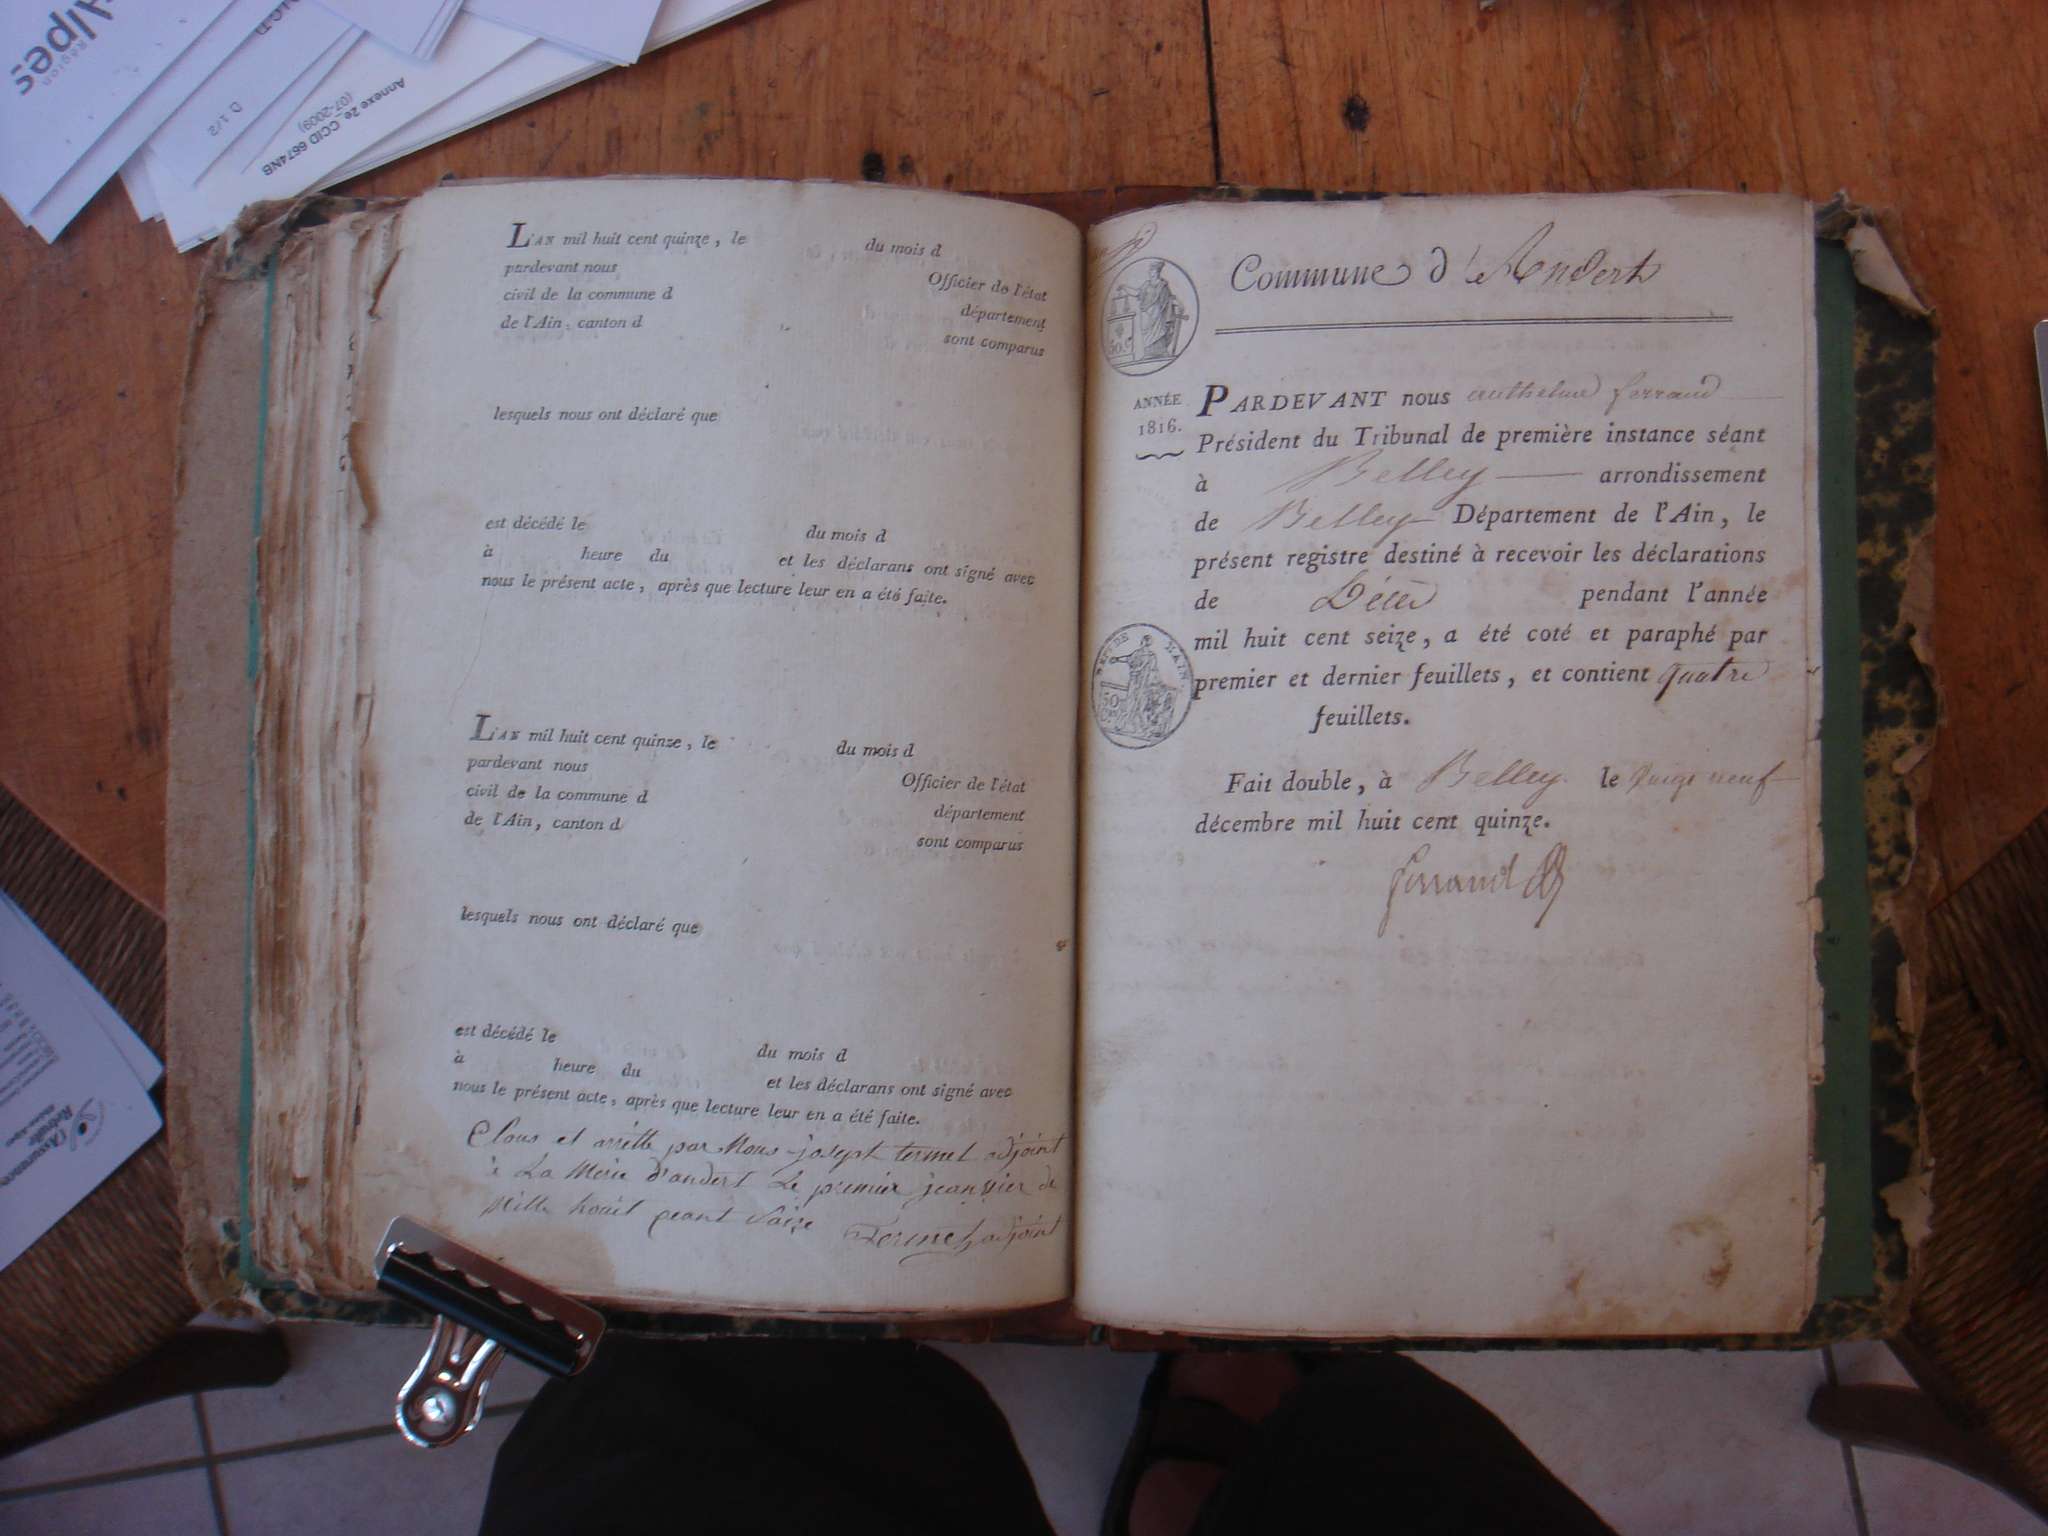 Alpes
Région
D 1/2
Annexe 2e CCID 6674NB
(07-2009)
L'AN mil huit cent quinze, le du mois d
pardevant nous Officier de l'état
civil de la commune d département
de l'Ain, canton d sont comparus
lesquels nous ont déclaré que
est décédé le du mois d
à heure du et les déclarans ont signé avec
nous le présent acte, après que lecture leur en a été faite.
L'AN mil huit cent quinze, le du mois d
pardevant nous Officier de l'état
civil de la commune d département
de l'Ain, canton d sont comparus
lesquels nous ont déclaré que
est décédé le du mois d
à heure du et les déclarans ont signé avec
nous le présent acte, après que lecture leur en a été faite.
Clous et arrette par Nous joseph termet adjoint
à La Merie d'andert Le premier jeanvier de
Mille houit ceant Saize Termet adjoint
Commune d'Andert
50.C
ANNÉE
1816.
PARDEVANT nous anthelme ferrand
Président du Tribunal de première instance séant
à Belley arrondissement
de Belley Département de l'Ain, le
présent registre destiné à recevoir les déclarations
de Décès pendant l'année
mil huit cent seize, a été coté et paraphé par
premier et dernier feuillets, et contient quatre
feuillets.
DE L'AIN
50
Fait double, à Belley le neuf
décembre mil huit cent quinze.
ferrand
l'Assurance
Retraite